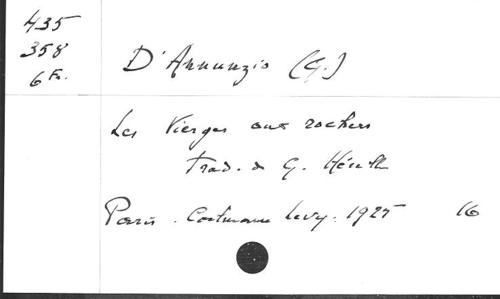 435
358
6 Fr.
D'Annunzio (G.)
Les Vierges aux rochers
trad. de G. Hérelle
Paris. Calmann Levy. 1925 16